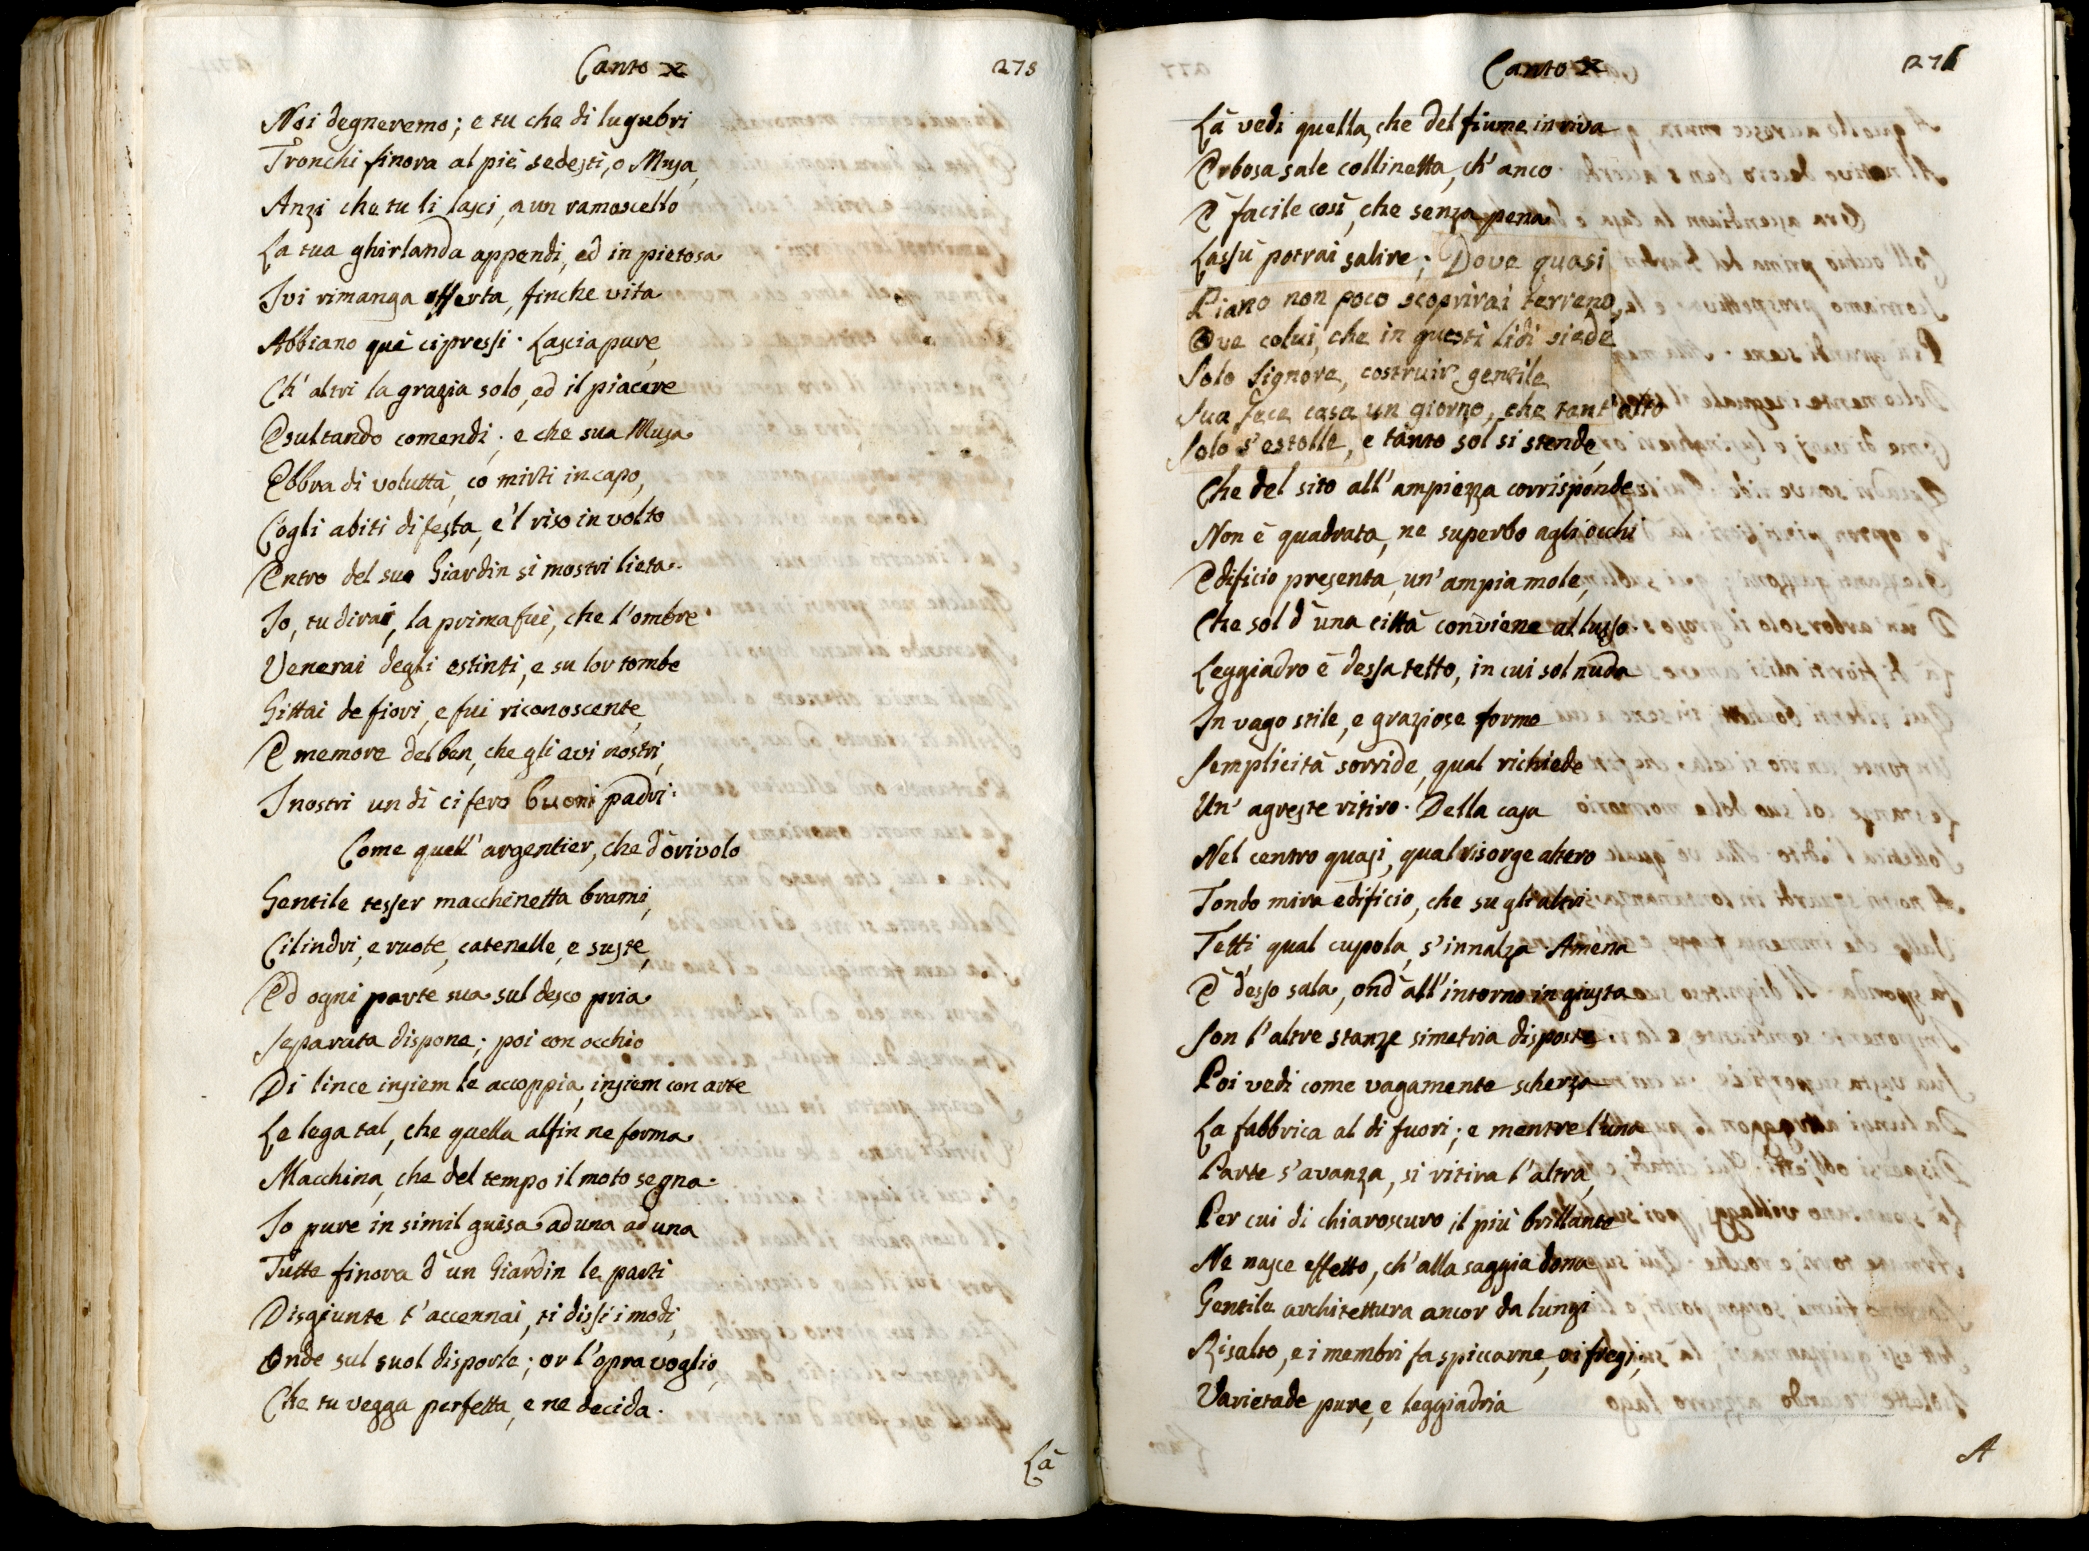 Canto X
275
Noi degneremo; e tu che di lugubri
Tronchi finora al piè sedesti, o Musa,
Anzi che tu li lasci, a un ramoscello
La tua ghirlanda appendi, ed in pietosa
Ivi rimanga offerta, finche vita
Abbiano què cipressi. Lascia pure,
Ch' altri la grazia solo, ed il piacere
Esultando comendi; e che sua Musa
Ebbra di voluttà, co mirti in capo,
Cogli abiti di festa, e'l riso in volto
Entro del suo Giardin si mostri lieta.
Io, tu dirai, la prima fui, che l'ombre
Venerai degli estinti, e su lor tombe
Gittai de fiori, e fui riconoscente,
E memore del ben, che gli avi nostri,
I nostri un dì ci fero buoni padri.
Come quell' argentier, che d'òrivolo
Gentile tesser macchinetta brami,
Cilindri, e ruote, catenelle, e suste,
Ed ogni parte sua sul desco pria
Separata dispone; poi con occhio
Di lince insiem le accoppia, insiem con arte
Le lega tal, che quella alfin ne forma
Macchina, che del tempo il moto segna.
Io pure in simil guisa ad una ad una
Tutte finora d' un Giardin le parti
Disgiunte t' accennai, ti dissi i modi,
Onde sul suol disporle; or l'opra voglio,
Che tu vegga perfetta, e ne decida.
Là
Canto X
276
Là vedi quella, che del fiume in riva
Erbosa sale collinetta, ch' anco
È facile così, che senza pena
Lassù potrai salire; Dove quasi
Piano non poco scoprirai terreno,
Ove colui, che in questi lidi siede
Solo Signore, costruir gentile
Sua fece casa un giorno, che tant' alto
Solo s'estolle, e tanto sol si stende,
Che del sito all' ampiezza corrisponde
Non è quadrata, ne superbo agli occhi
Edificio presenta, un' ampia mole,
Che sol d' una città conviene al lusso.
Leggiadro è dessa tetto, in cui sol nuda
In vago stile, e graziose forme
Semplicità sorride, qual richiede
Un' agreste ritiro. Della casa
Nel centro quasi, qual risorge altero
Tondo mira edificio, che su gli altri
Tetti qual cupola, s'innalza. Amena
È desso sala, ond' all' intorno in giusta
Son l'altre stanze simetria disposte
Poi vedi come vagamente scherza
La fabbrica al di fuori; e mentre l'una
Parte s'avanza, si ritira l'altra,
Per cui di chiaroscuro il più brillante
Ne nasce effetto, ch' alla saggia dona
Gentile architettura ancor da lungi
Risalto, e i membri fa spiccarne, e i fregi;
Varietade pure, e leggiadria
A